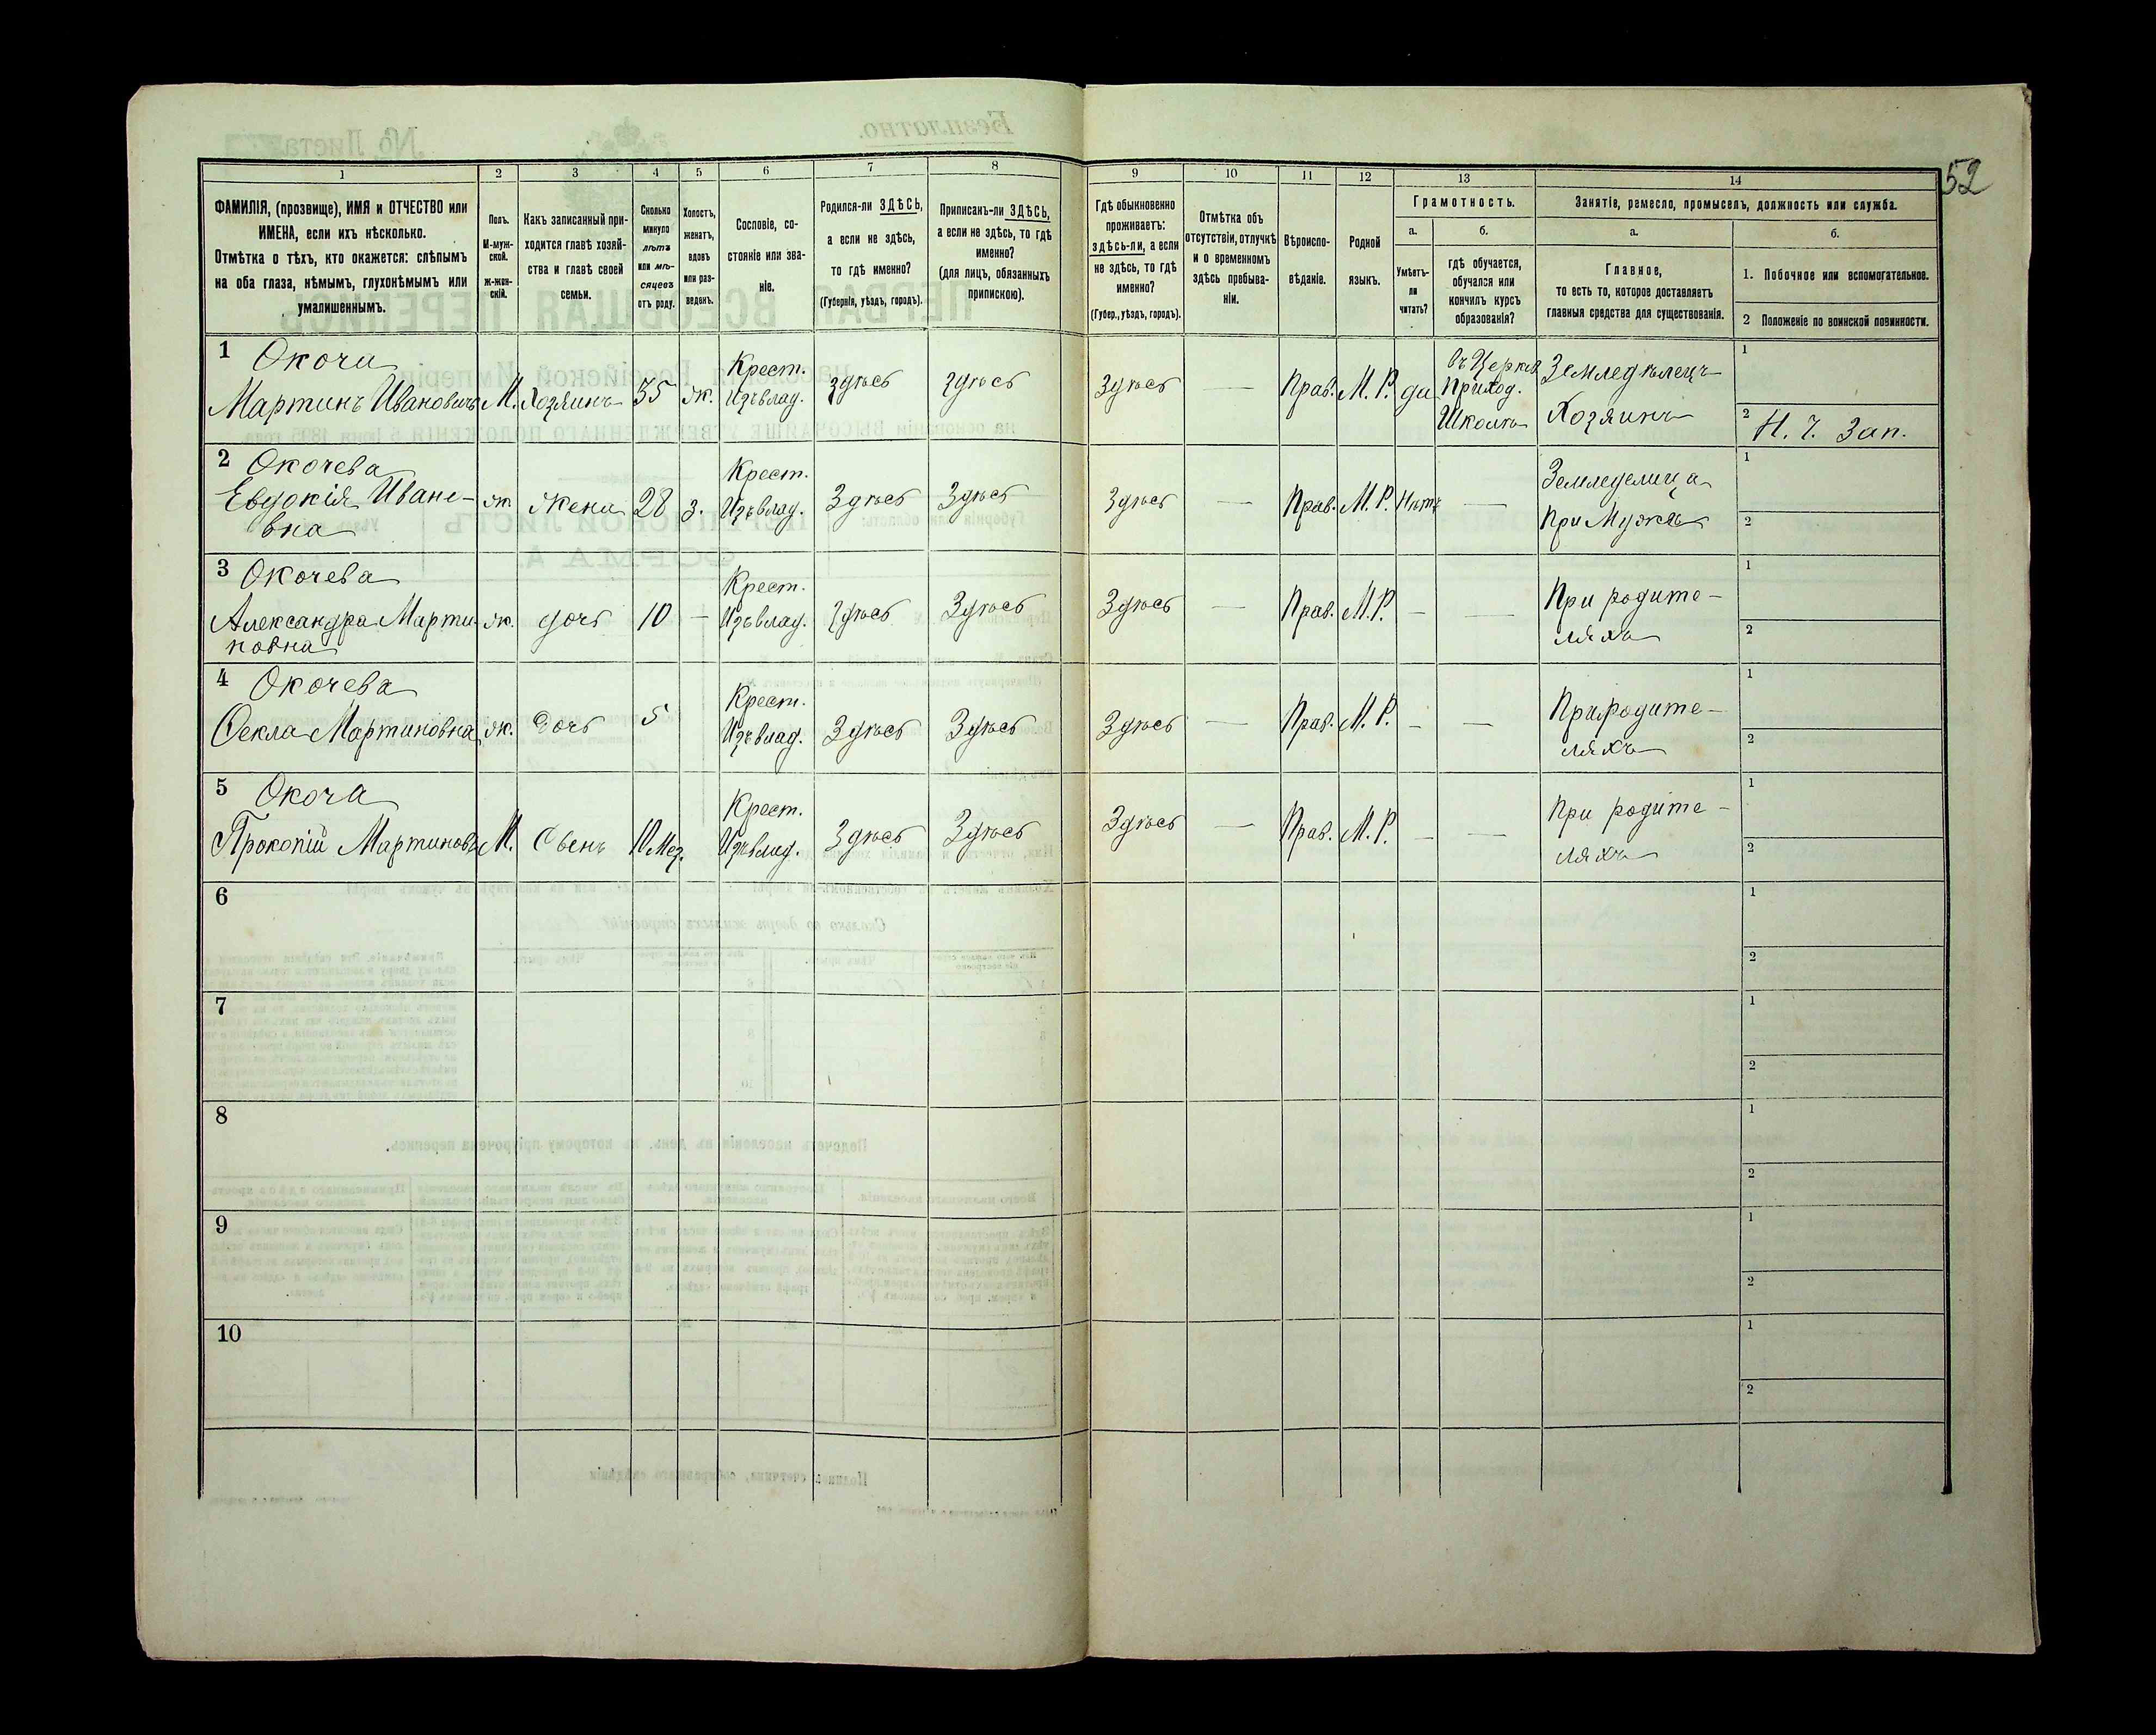 52
1 2 3 4 5 6 7 8 9 10 11 12 13 14
ФАМИЛІЯ, (прозвище), ИМЯ и ОТЧЕСТВО или
ИМЕНА, если ихъ нѣсколько.
Отмѣтка о тѣхъ, кто окажется: слѣпымъ
на оба глаза, нѣмымъ, глухонѣмымъ или
умалишеннымъ.
Полъ.
М-муж-
ской.
ж-жен-
скій.
Какъ записанный при-
ходится главѣ хозяй-
ства и главѣ своей
семьи.
Сколько
минуло
лѣтъ
или мѣ-
сяцевъ
отъ роду.
Холостъ,
женатъ,
вдовъ
или раз-
веденъ.
Сословіе, со-
стояніе или зва-
ніе.
Родился-ли ЗДѢСЬ,
а если не здѣсь,
то гдѣ именно?
(Губернія, уѣздъ, городъ).
Приписанъ-ли ЗДѢСЬ,
а если не здѣсь, то гдѣ
именно?
(для лицъ, обязанныхъ
припискою).
Гдѣ обыкновенно
проживаетъ:
здѣсь-ли, а если
не здѣсь, то гдѣ
именно?
(Губер., уѣздъ, городъ).
Отмѣтка объ
отсутствіи, отлучкѣ
и о временномъ
здѣсь пребыва-
ніи.
Вѣроиспо-
вѣданіе.
Родной
языкъ.
Грамотность.
а.
Умѣетъ-
ли
читать?
б.
гдѣ обучается,
обучался или
кончилъ курсъ
образованія?
Занятіе, ремесло, промыселъ, должность или служба.
а.
Главное,
то есть то, которое доставляетъ
главныя средства для существованія.
б.
1. Побочное или вспомогательное.
2 Положеніе по воинской повинности.
1 Окоча
Мартинъ Ивановичъ М. Хозяинъ 35 ж. Крест. Изъ влад. Здѣсь Здѣсь Здѣсь — Прав. М. Р. да въ Церков Приход. Школѣ Земледѣлецъ Хозяинъ
1
2 Н. Ч. Зап.
2 Окочева
Евдокія Ивано-
вна ж. Жена 28 З. Крест. Изъ влад. Здѣсь Здѣсь Здѣсь — Прав. М. Р. Нѣтъ — Земледелица при Мужѣ
1
2
3 Окочева
Александра Марти-
новна ж. дочь 10 — Крест. Изъ влад. Здѣсь Здѣсь Здѣсь — Прав. М. Р. — — При родите-
ляхъ
1
2
4 Окочева
Ѳекла Мартиновна ж. Дочь 5 Крест. Изъ влад. Здѣсь Здѣсь Здѣсь — Прав. М. Р. — — При родите-
ляхъ
1
2
5 Окоча
Прокопій Мартиновъ М. Сынъ 10 Мес. Крест. Изъ влад. Здѣсь Здѣсь Здѣсь — Прав. М. Р. — — При родите-
ляхъ
1
2
6
1
2
7
1
2
8
1
2
9
1
2
10
1
2